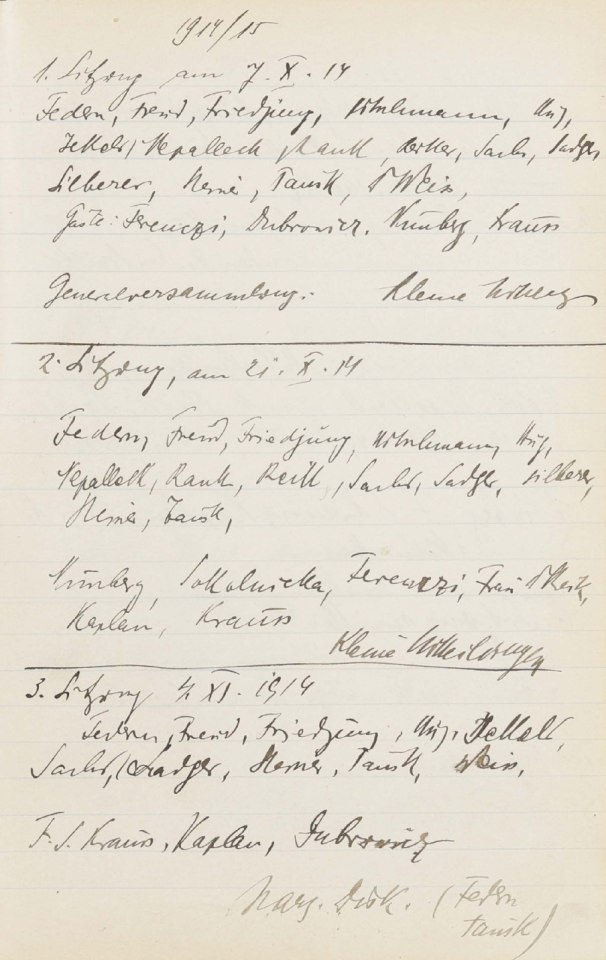 1914/15
1. Sitzung am 7. X. 14
Federn, Freud, Friedjung, Hitschmann, Hug,
Jekels, Nepalleck, Rank, Sachs, Sadger
Silberer, Steiner, Tausk, Weiss,
Gäste: Ferenczi, Dubrowicz, Nunberg, Krauss
Generalversammlung. Kleine
2. Sitzung, am 21. X. 14
Federn, Freud, Friedjung, Hitschmann, Hug,
Nepalleck, Rank, Reik, Sachs, Sadger, Silberer,
Steiner, Tausk,
Nunberg, Sokolnicka, Ferenczi, Frau
Kaplan, Krauss
Kleine Mitteilungen
3. Sitzung 4. XI. 1914
Federn, Freud, Friedjung, Hug, Jekels,
Sachs, Sadger, Steiner, Tausk, Weiss,
F. S. Krauss, Kaplan, Dubrowicz
Disk. (Federn
Tausk)